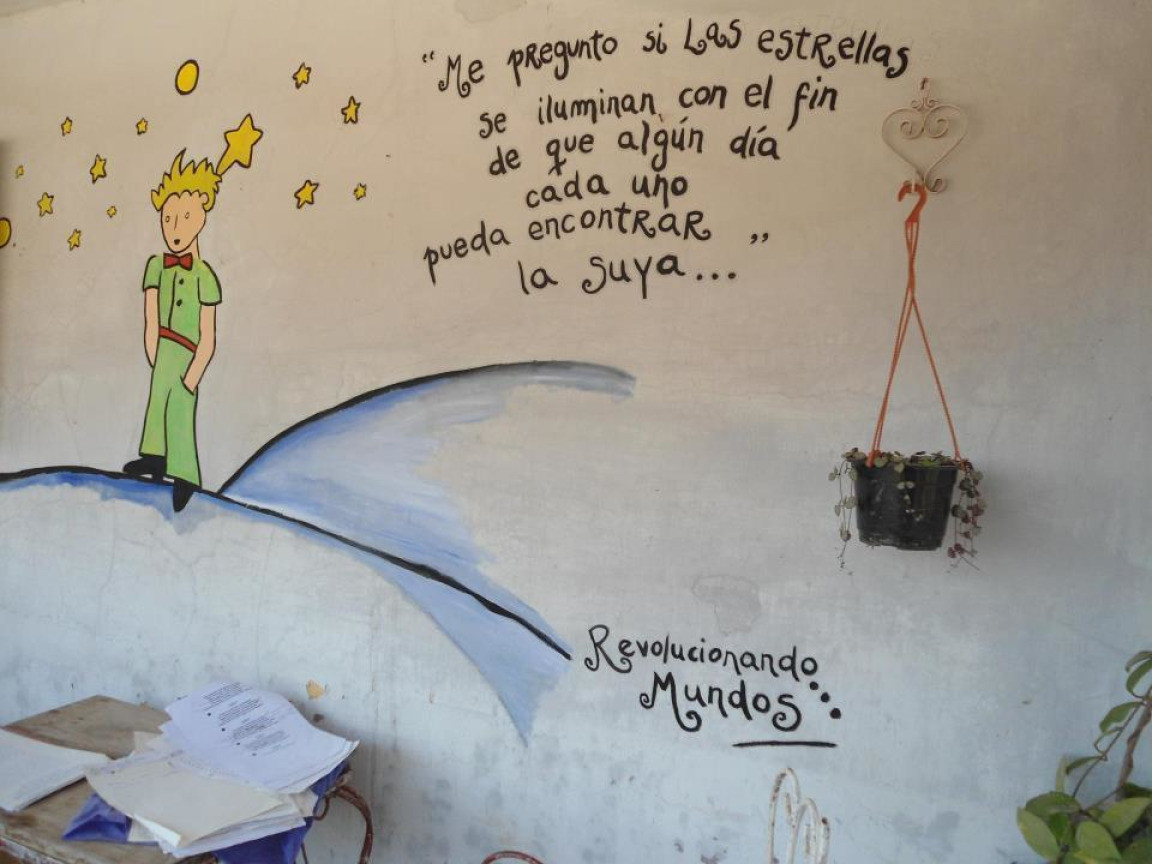 “Me pregunto si Las estrellas
se iluminan con el fin
de que algún día
cada uno
pueda encontrar
la suya...”
Revolucionando
Mundos...